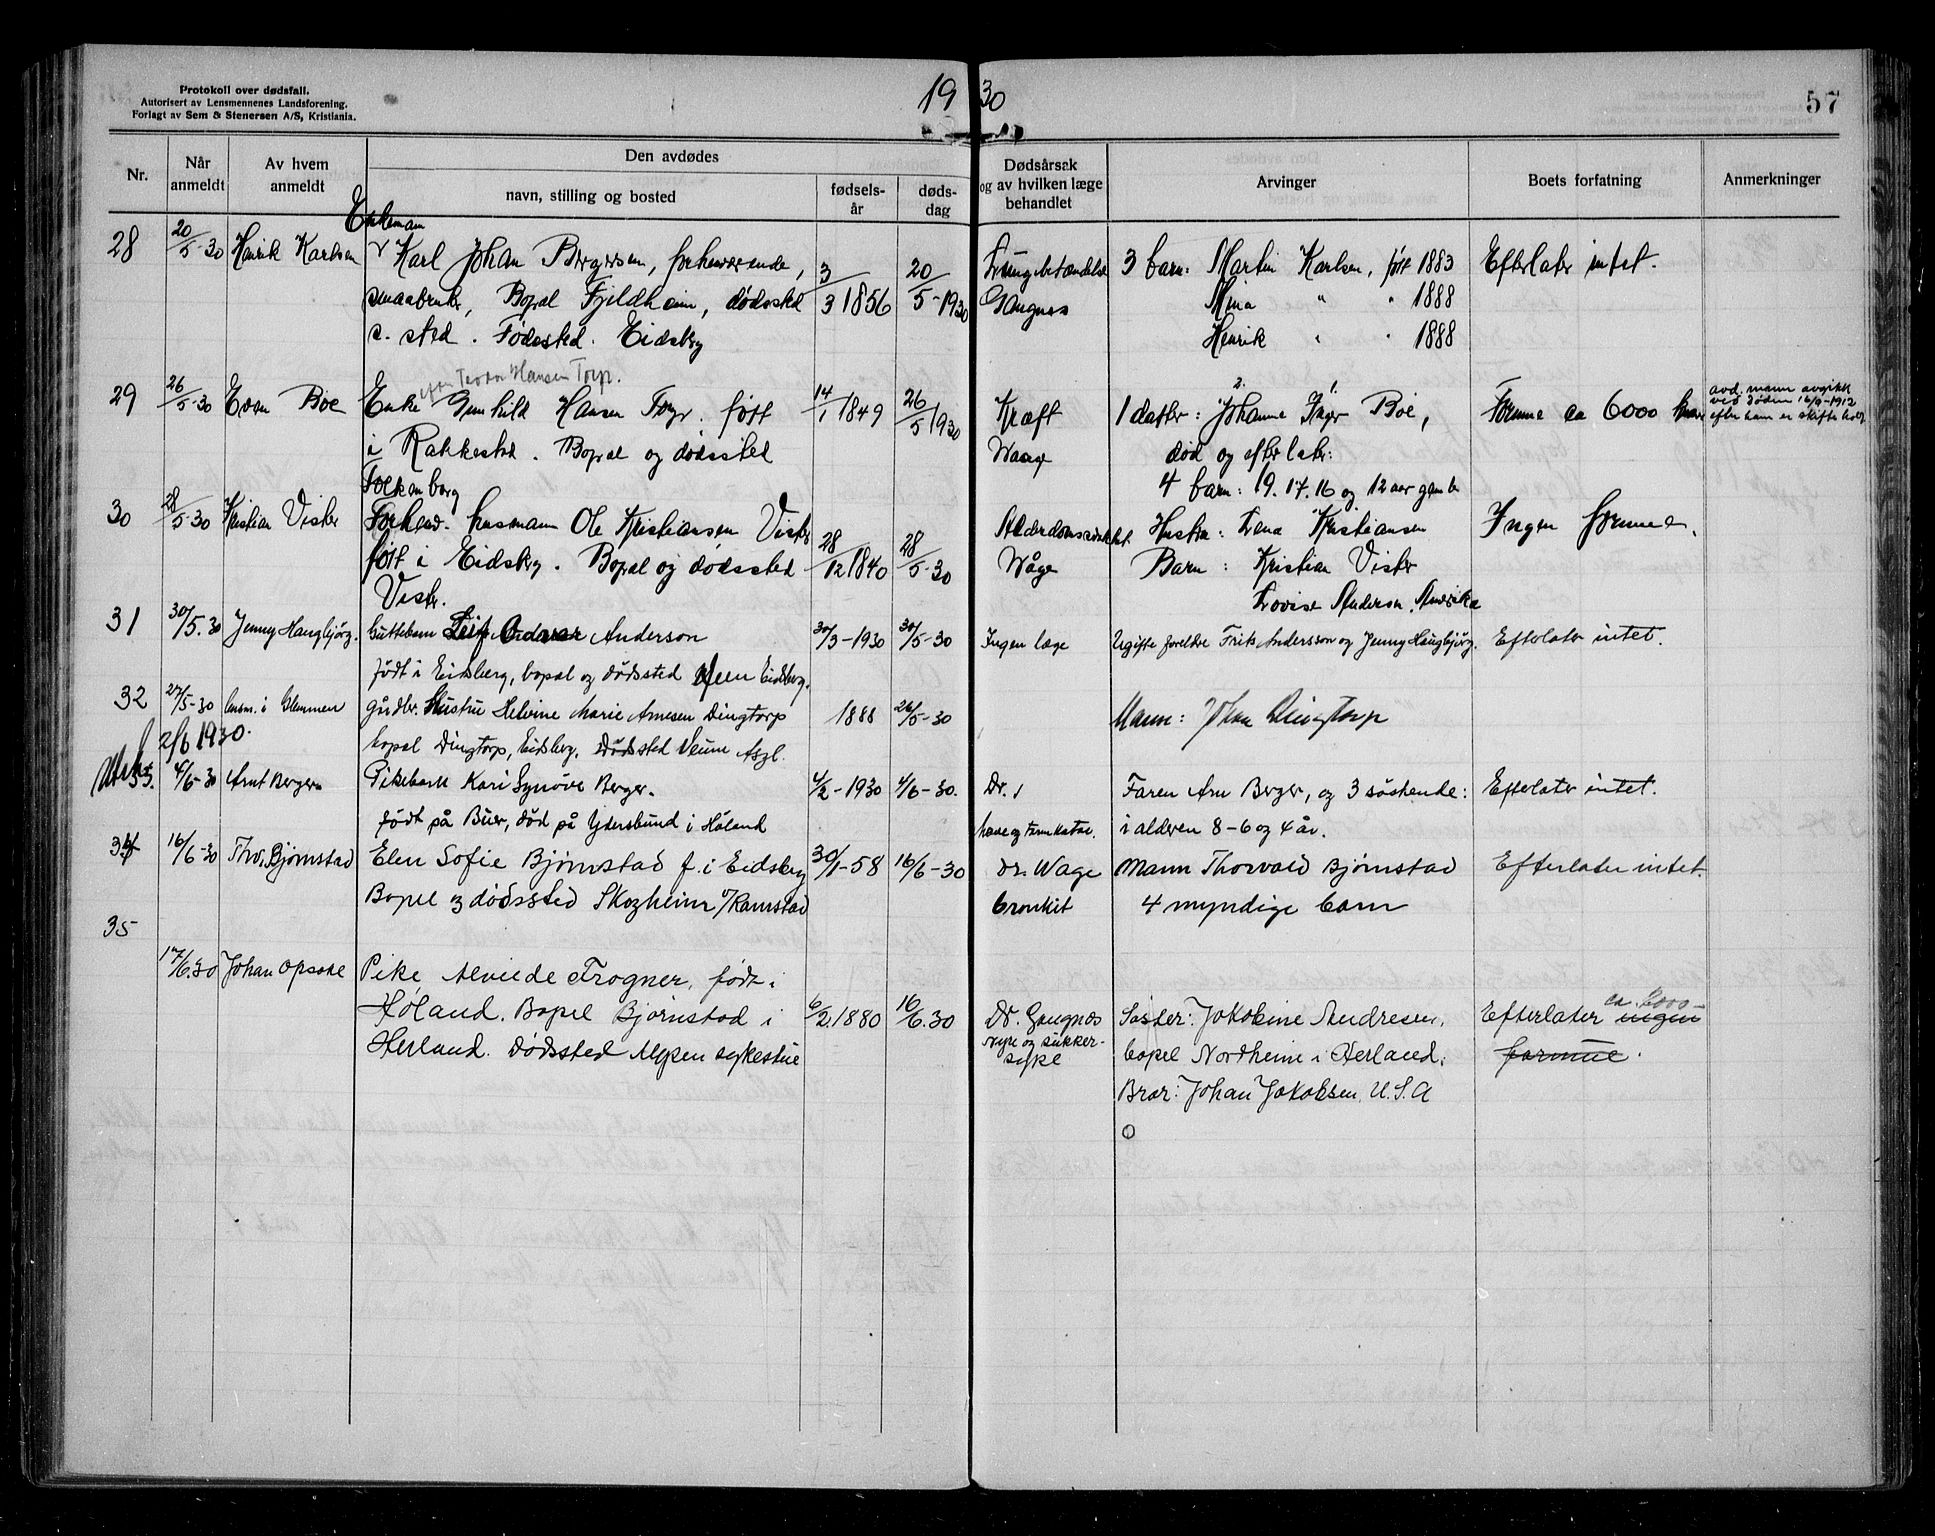 Protokoll over dødsfall.
Autorisert av Lensmennenes Landsforening.
Forlagt av Sem & Stenersen A/S, Kristiania.
19 30
57
Nr.
Når anmeldt
Av hvem anmeldt
Den avdødes
navn, stilling og bosted
fødsels-år
døds-dag
Dødsårsak og av hvilken læge behandlet
Arvinger
Boets forfatning
Anmerkninger
Enkemann
28 20/5-30 Henrik Karlsen Karl Johan Bergersen, forhenværende, 3/3 1856 20/5-1930 Lungebetændelse 3 barn: Martin Karlsen, født 1883 Efterlater intet.
smaabruker, Bopæl Fjeldheim, dødssted Gangnæs Mina " " 1888
s. sted. Fødested. Eidsberg Henrik " " 1888
efter Teodor Hansen Torp.
29 26/5-30 Evan Boe Enke Gunhild Hansen Torp. født 14/1 1849 26/5 1930 Kræft 1 datter: Johanne Inger Boe, Formue ca 6000 kroner avd. mann avgikk
ved døden 16/9-1912
efter ham er skifte holdt
i Rakkestad. Bopæl og dødssted Waage død og efterlater:
Folkenborg 4 barn: 19. 17. 16 og 12 aar gamle
30 28/5-30 Kristian Vister Forhenv. husmann Ole Kristiansen Vister 28/12 1840 28/5-30 Alderdomssvakhet Hustru: Lena Kristiansen Ingen formue.
født i Eidsberg. Bopæl og dødssted Wåge Barn: Kristian Vister
Vister. Lovise Anderson, Amerika
31 30/5.30 Jenny Haugbjørg. Guttebarn Leif Anderson 30/3-1930 30/5-30 Ingen læge Ugifte foreldre Frits Andersson og Jenny Haugbjørg. Efterlater intet.
født i Eidsberg, bopæl og dødssted Eidsberg.
32 27/5-30 lensm. i Glemmen gårdbr. Hustru Helvine Marie Arnesen Dingtorp 1888 26/5-30 Mann: Johan Dingtorp
2/6 1930. bopæl Dingtorp, Eidsberg. Dødssted Veum Asyl.
33. 4/6-30 Arnt Berger Pikebarn Kari Synøve Berger. 4/2-1930 4/6-30. Dr. Faren Arn Berger, og 3 søskende: Efterlater intet.
født på Buer, død på Ydersbund i Høland i alderen 8-6 og 4 år.
34 16/6-30 Thv. Bjørnstad Elen Sofie Bjørnstad f. i Eidsberg 30/1-58 16/6-30 Dr. Wage Mann Thorvald Bjørnstad Efterlater intet.
Bopel og dødssted Skogheim u/Ramstad bronkit 4 myndige barn
35
17/6.30 Johan Opsahl Pike, Alvilde Frogner, født i
Høland. Bopel Bjørnstad i 6/2 1880 16/6.30 Dr. Gangnæs Søster: Jakobine Andresen, Efterlater ingen ca.
Herland. Dødssted Mysen sykestue Nyre og sukker-syke bopel Nordheim i Herland. formue.
Bror: Johan Jakobsen, U.S.A